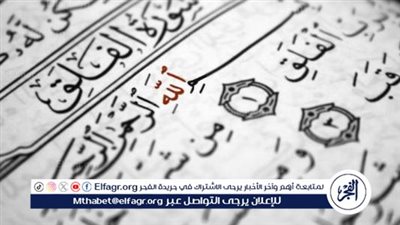 كُن لَّهُ
سورة الفلق
الله الرَّحْمَٰنِ
الْفَلَقِ
١
مِن
٢
لمتابعة أهم وآخر الأخبار يرجى الاشتراك في جريدة الفجر Elfagr.org
للإعلان يرجى التواصل عبر Mthabet@elfagr.org
الفجر